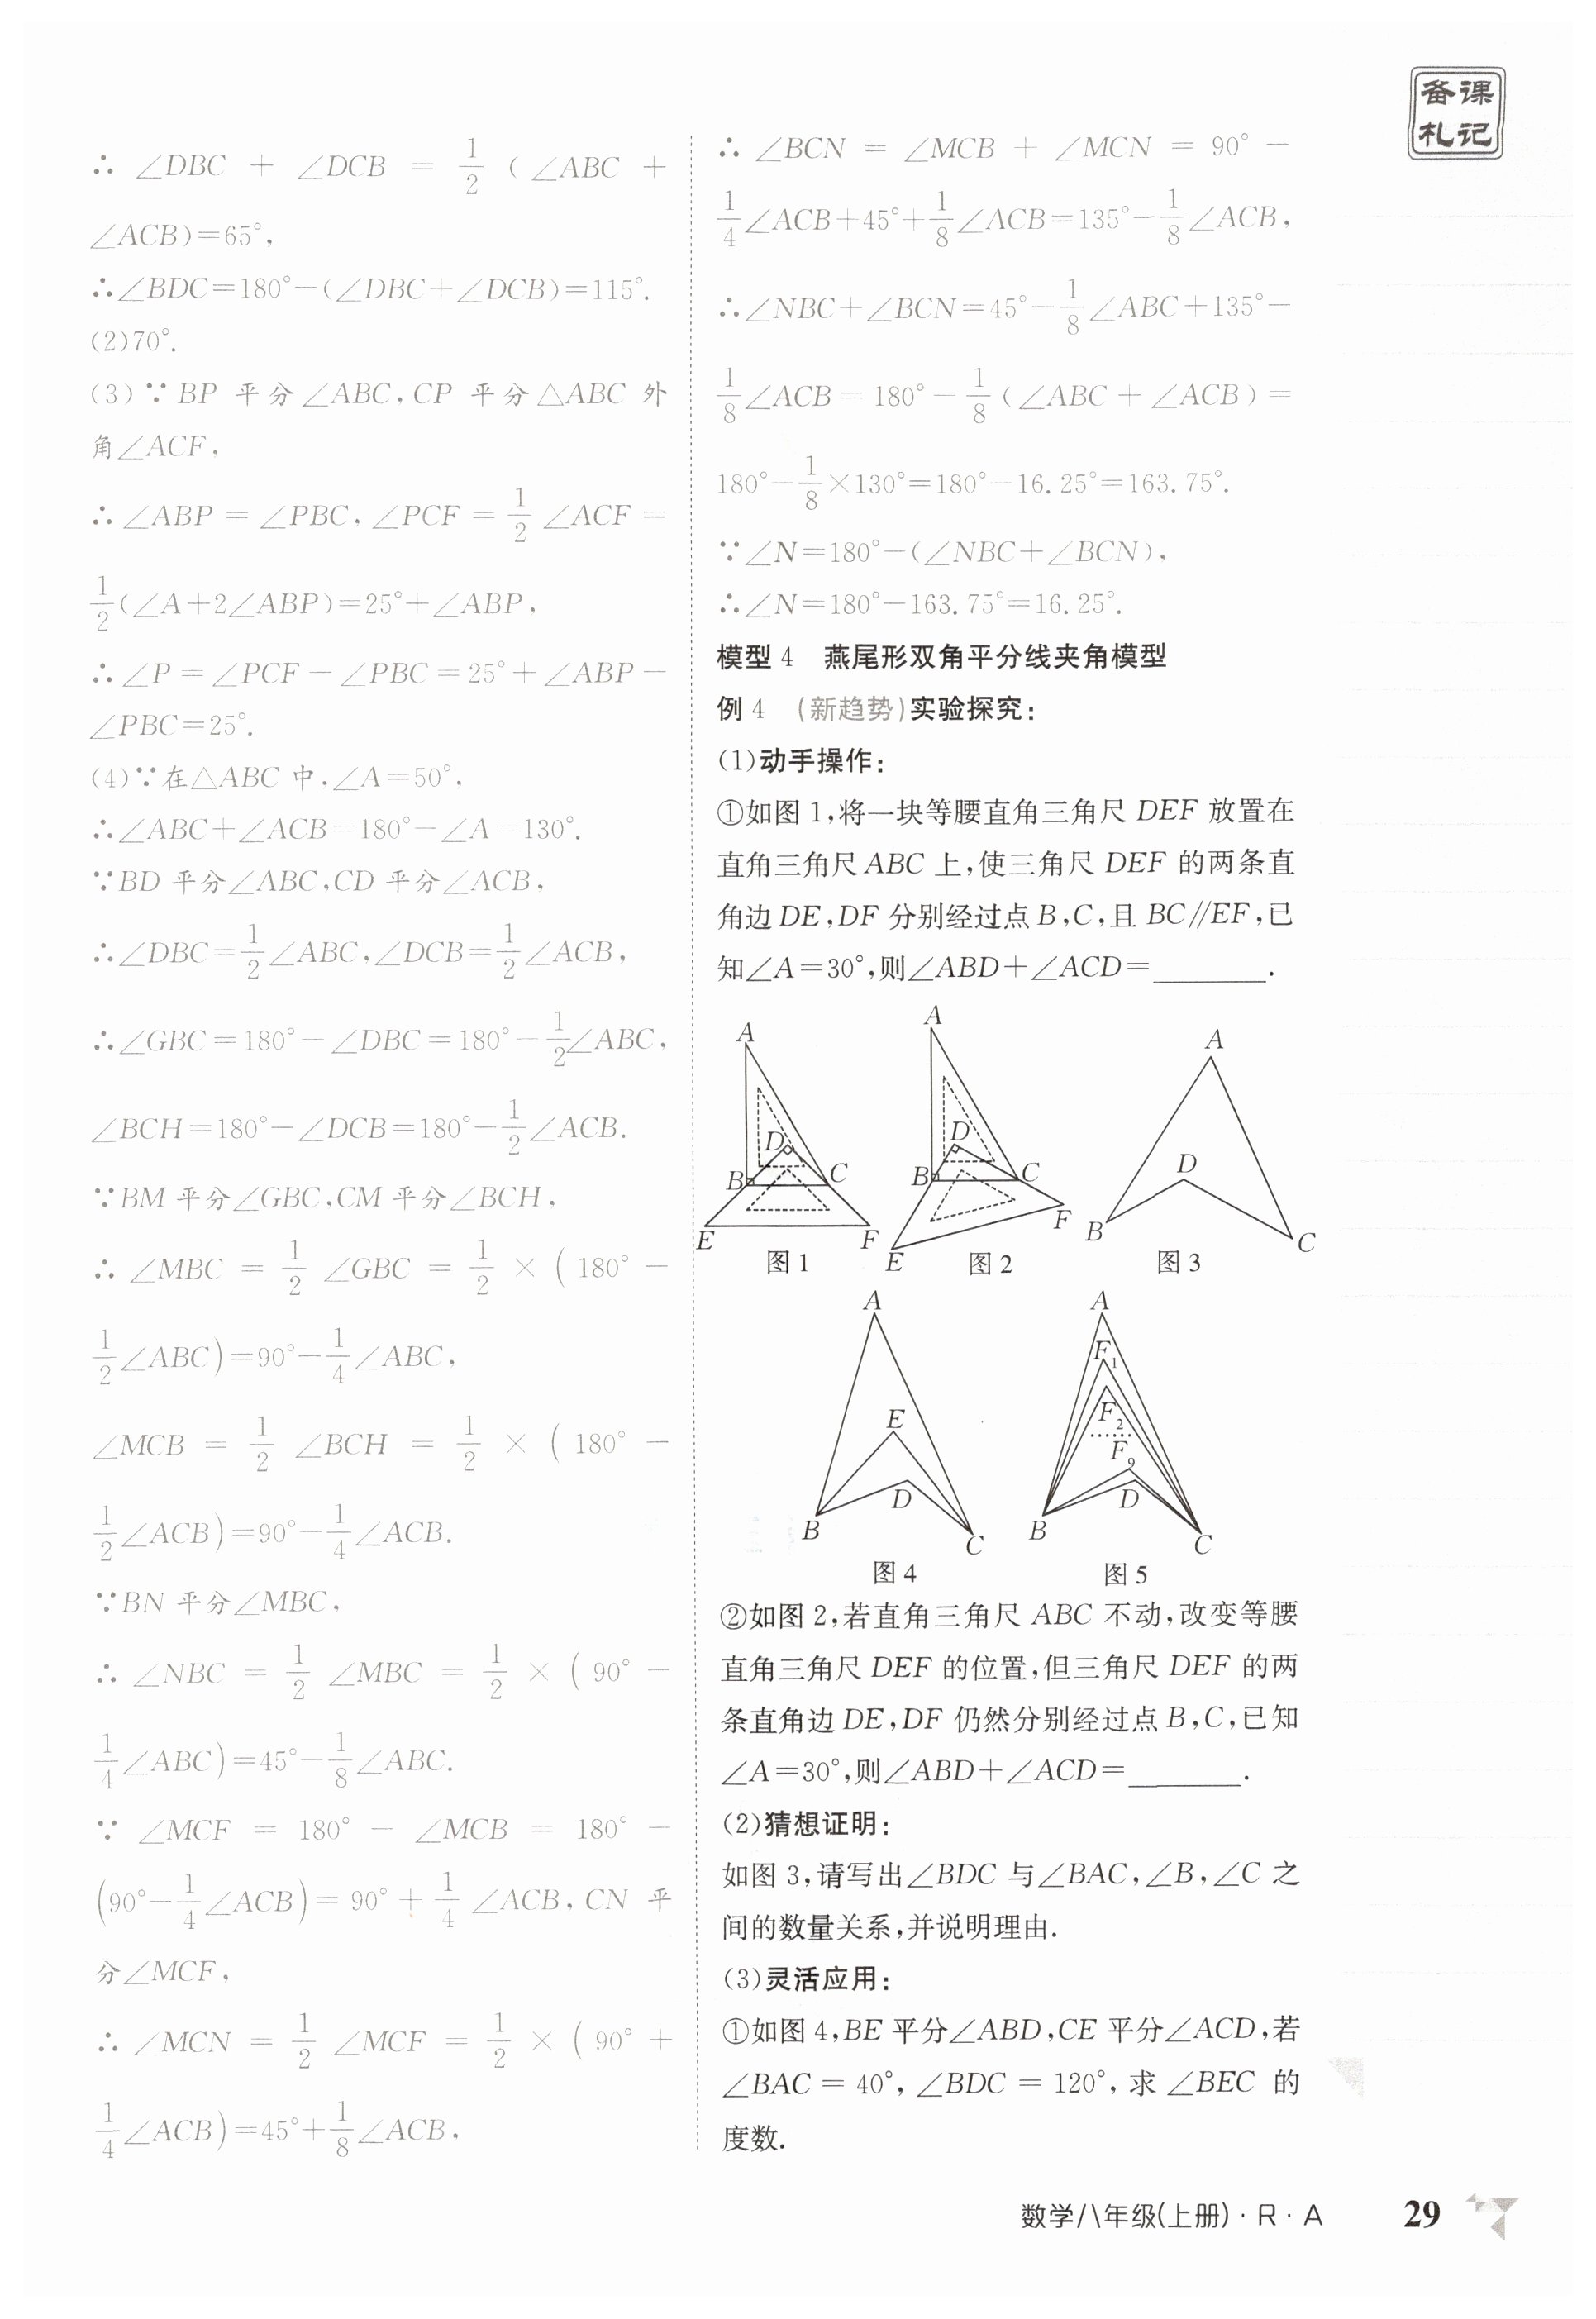 备课
札记
∴ ∠DBC + ∠DCB = 1/2 ( ∠ABC +
∠ACB)=65°,
∴∠BDC=180°-(∠DBC+∠DCB)=115°.
(2)70°.
(3)∵ BP 平分∠ABC,CP 平分△ABC 外
角∠ACF,
∴ ∠ABP = ∠PBC, ∠PCF = 1/2 ∠ACF =
1/2(∠A+2∠ABP)=25°+∠ABP,
∴ ∠P = ∠PCF - ∠PBC = 25° + ∠ABP -
∠PBC=25°.
(4)∵在△ABC 中,∠A=50°,
∴∠ABC+∠ACB=180°-∠A=130°.
∵BD 平分∠ABC,CD 平分∠ACB,
∴∠DBC=1/2∠ABC,∠DCB=1/2∠ACB,
∴∠GBC=180°-∠DBC=180°-1/2∠ABC,
∠BCH=180°-∠DCB=180°-1/2∠ACB.
∵BM 平分∠GBC,CM 平分∠BCH,
∴ ∠MBC = 1/2 ∠GBC = 1/2 × ( 180° -
1/2∠ABC)=90°-1/4∠ABC,
∠MCB = 1/2 ∠BCH = 1/2 × ( 180° -
1/2∠ACB)=90°-1/4∠ACB.
∵BN 平分∠MBC,
∴ ∠NBC = 1/2 ∠MBC = 1/2 × ( 90° -
1/4∠ABC)=45°-1/8∠ABC.
∵ ∠MCF = 180° - ∠MCB = 180° -
(90°-1/4∠ACB)= 90° + 1/4 ∠ACB, CN 平
分∠MCF,
∴ ∠MCN = 1/2 ∠MCF = 1/2 × ( 90° +
1/4∠ACB)=45°+1/8∠ACB,
∴ ∠BCN = ∠MCB + ∠MCN = 90° -
1/4∠ACB+45°+1/8∠ACB=135°-1/8∠ACB,
∴∠NBC+∠BCN=45°-1/8∠ABC+135°-
1/8∠ACB = 180° - 1/8( ∠ABC + ∠ACB ) =
180°-1/8×130°=180°-16.25°=163.75°.
∵∠N=180°-(∠NBC+∠BCN),
∴∠N=180°-163.75°=16.25°.
模型 4 燕尾形双角平分线夹角模型
例 4 (新趋势)实验探究:
(1)动手操作:
①如图 1,将一块等腰直角三角尺 DEF 放置在
直角三角尺 ABC 上,使三角尺 DEF 的两条直
角边 DE,DF 分别经过点 B,C,且 BC∥EF,已
知∠A=30°,则∠ABD+∠ACD=________.
A
D
B
C
E
F
图 1
A
D
B
C
F
E
图 2
A
D
B
C
图 3
A
E
D
B
C
图 4
A
F1
F2
......
F9
D
B
C
图 5
②如图 2,若直角三角尺 ABC 不动,改变等腰
直角三角尺 DEF 的位置,但三角尺 DEF 的两
条直角边 DE,DF 仍然分别经过点 B,C,已知
∠A=30°,则∠ABD+∠ACD=________.
(2)猜想证明:
如图 3,请写出∠BDC 与∠BAC,∠B,∠C 之
间的数量关系,并说明理由.
(3)灵活应用:
①如图 4,BE 平分∠ABD,CE 平分∠ACD,若
∠BAC = 40°, ∠BDC = 120°, 求 ∠BEC 的
度数.
数学/八年级(上册)·R·A 29